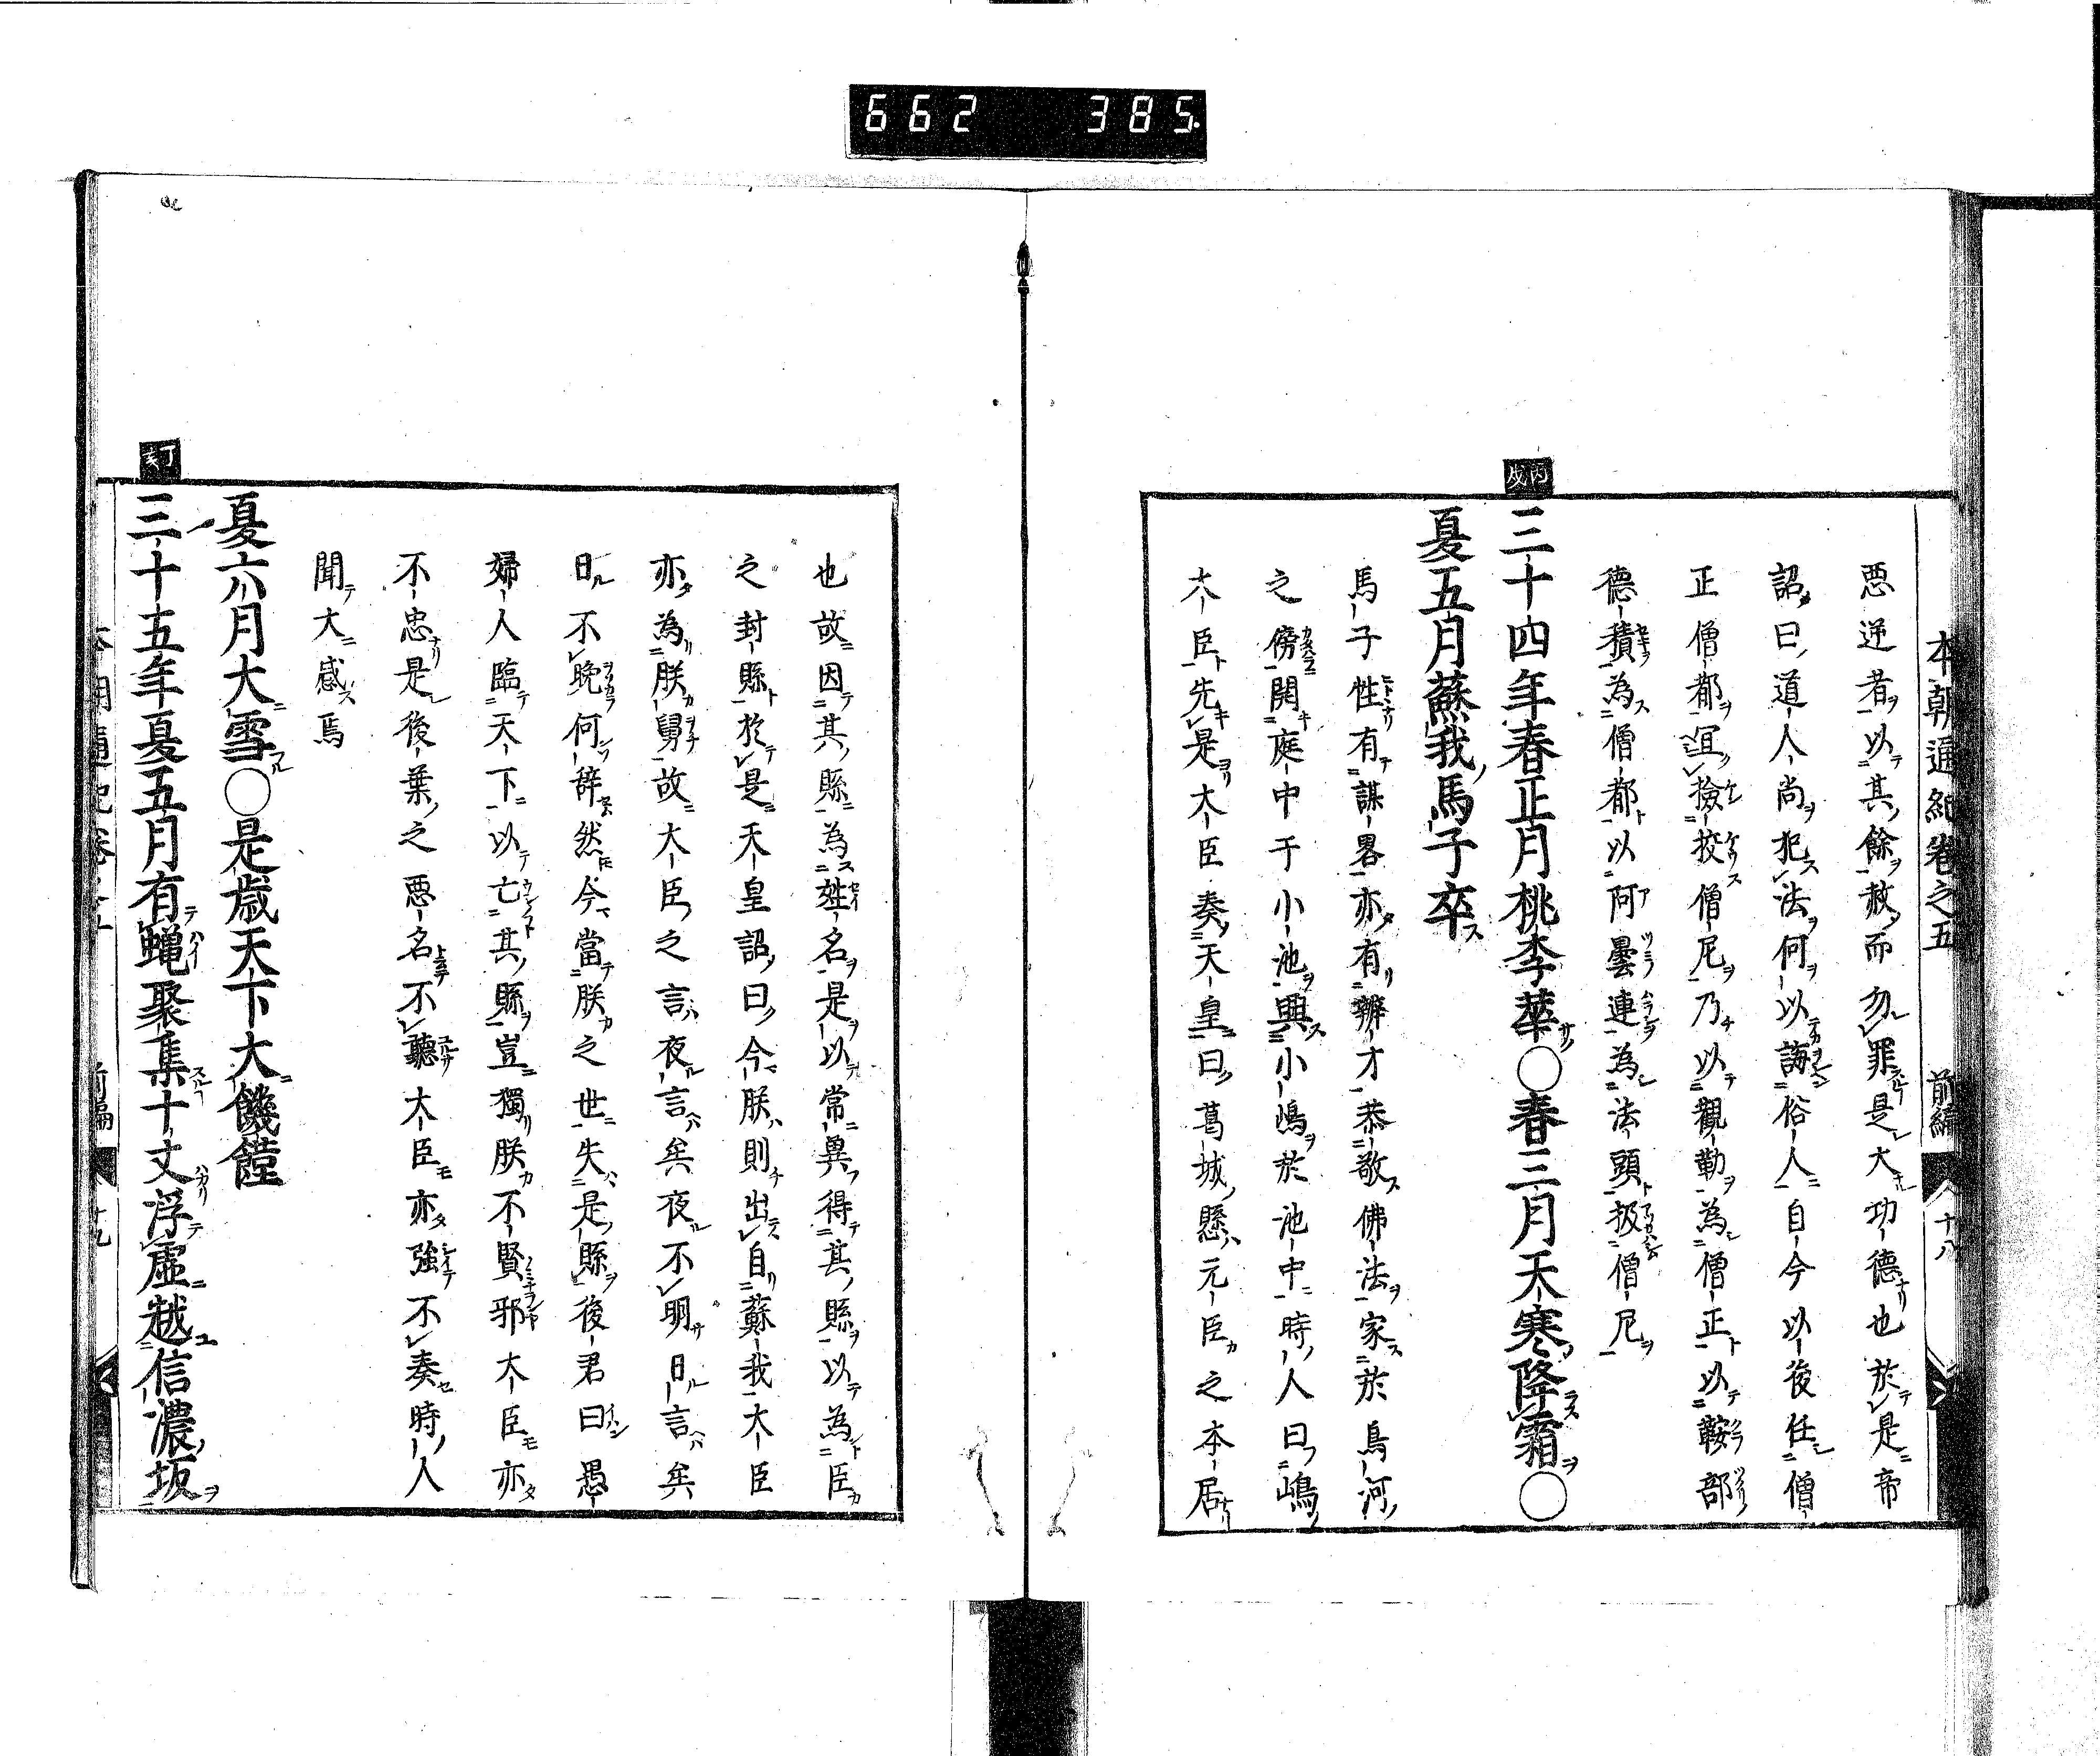 662 385.
本朝通紀卷之五 前編 十八
悪逆者以其餘赦而勿罪是大功德也於是帝
詔曰道人尚犯法何以誨俗人自今以後任僧
正僧都宜撿挍僧尼乃以觀勒為僧正以鞍部
德積為僧都以阿曇連為法頭扱僧尼
丙戌
三十四年春正月桃李華○春三月天寒降霜○
夏五月蘇我馬子卒
馬子性有謀畧亦有辨才恭敬佛法家於鳥河
之傍開庭中于小池興小嶋於池中時人曰嶋
大臣先是大臣奏天皇曰葛城懸元臣之本居
也故因其縣為姓名是以常兾得其縣以為臣
之封縣於是天皇詔曰今朕則出自蘇我大臣
亦為朕舅故大臣之言夜言矣夜不明日言矣
日不晩何辞然今當朕之世失是縣後君曰愚
婦人臨天下以亡其縣豈獨朕不賢邪大臣亦
不忠是後葉之悪名不聽大臣亦強不奏時人
聞大感焉
夏六月大雪○是歳天下大饑饉
丁亥
三十五年夏五月有蝿聚集十丈浮虛越信濃坂
前編 十九